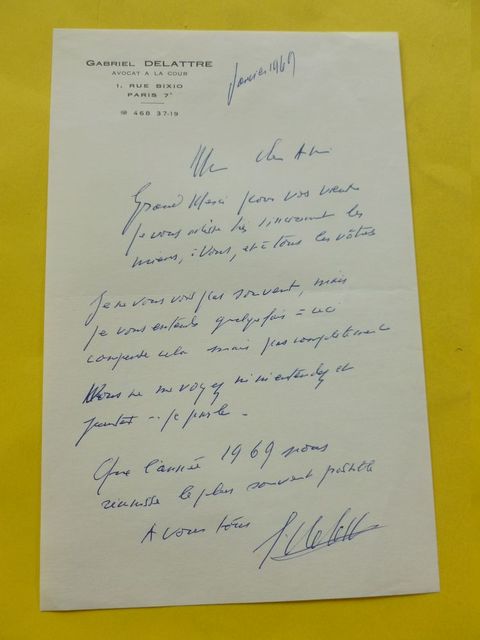 GABRIEL DELATTRE
AVOCAT A LA COUR
1, RUE BIXIO
PARIS 7e
☎ 468 37-19
Janvier 1969
Mon cher Ami
Grand Merci pour vos vœux
Je vous adresse très sincèrement les
miens, à vous, et à tous les vôtres
Je ne vous vois pas souvent, mais
je vous entends quelquefois = ceci
compense cela mais pas complètement
Vous ne me voyez ni m'entendez et
pourtant -- je parle -
Que l'année 1969 nous
réunisse le plus souvent possible
A vous tous
G. Delattre